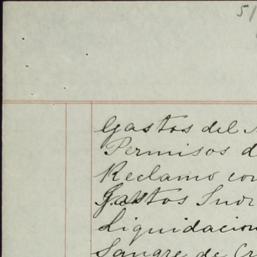 5/
Gastos del
Permisos d
Reclamo con
Gastos
Liquidacion
Sangre de Cr